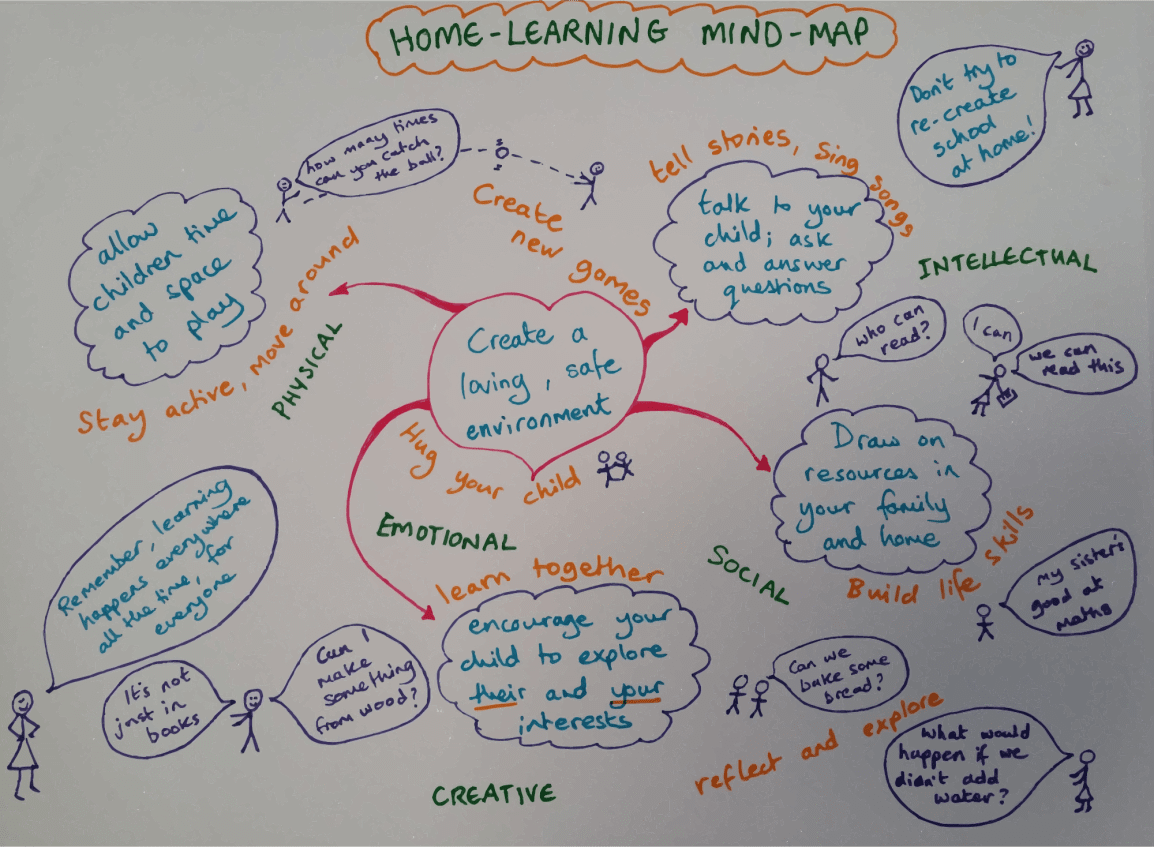 HOME-LEARNING MIND-MAP
Don't try to
re-create
school
at home!
how many times
can you catch
the ball?
Create
new games
tell stories, Sing songs
talk to your
child; ask
and answer
questions
INTELLECTUAL
allow
children time
and space
to play
Stay active, move around
PHYSICAL
Create a
loving, safe
environment
Hug your child
who can
read?
I can
we can
read this
Draw on
resources in
your family
and home
Build life skills
SOCIAL
EMOTIONAL
Remember, learning
happens everywhere
all the time, for
everyone
It's not
just in
books
Can I
make
something
from wood?
learn together
encourage your
child to explore
their and your
interests
CREATIVE
My sister's
good at
maths
Can we
bake some
bread?
reflect and explore
What would
happen if we
didn't add
water?